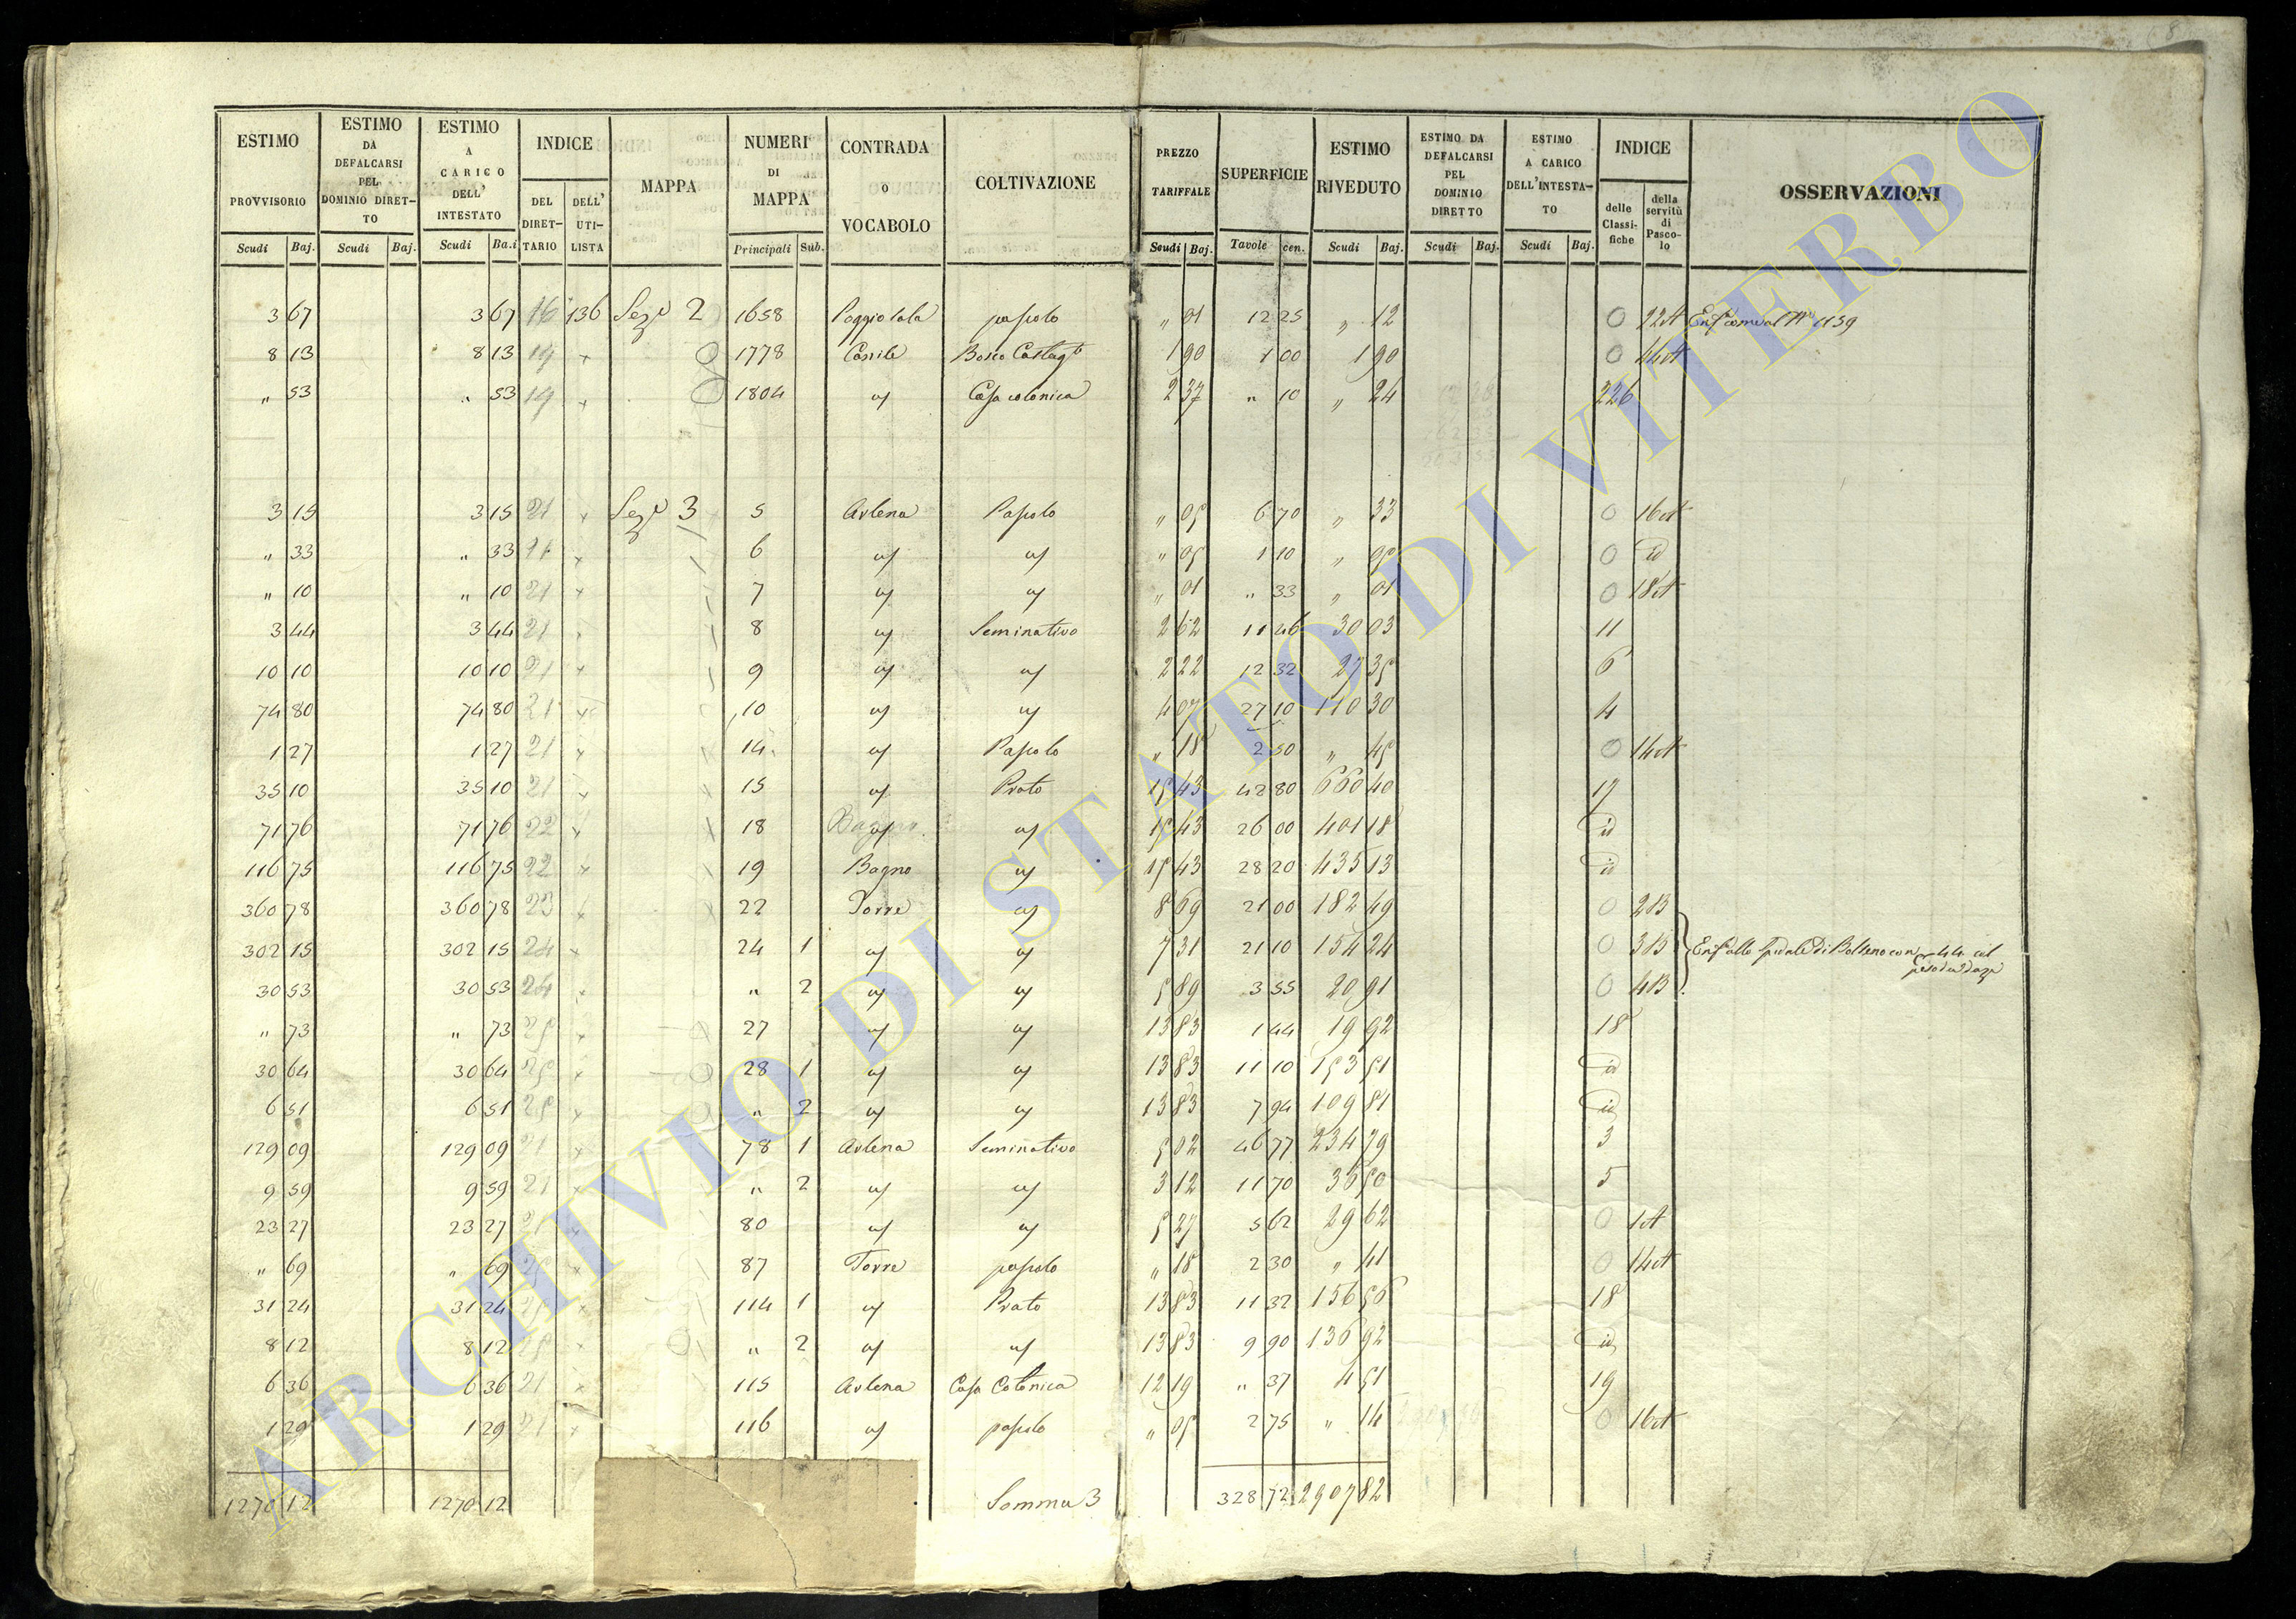 ESTIMO PROVVISORIO | ESTIMO DA DEFALCARSI PEL DOMINIO DIRETTO | ESTIMO A CARICO DELL' INTESTATO | INDICE | MAPPA | NUMERI DI MAPPA | CONTRADA O VOCABOLO | COLTIVAZIONE | PREZZO TARIFFALE | SUPERFICIE | ESTIMO RIVEDUTO | ESTIMO DA DEFALCARSI PEL DOMINIO DIRETTO | ESTIMO A CARICO DELL'INTESTATO | INDICE | OSSERVAZIONI
DEL DIRETTARIO | DELL' UTILISTA | delle Classifiche | della servitù di Pascolo
Scudi Baj. | Scudi Baj. | Scudi Ba.i | Principali Sub. | Scudi Baj. | Tavole cen. | Scudi Baj. | Scudi Baj. | Scudi Baj.
3 67 3 67 16 136 Sez.e 2 1658 Poggio pascolo " 01 12 25 " 12 0 22A 1159
8 13 8 13 19 × 1778 Canile Bosco 1 90 1 00 1 90 0 14A
" 53 " 53 19 × 1804 " Casa colonica 2 37 " 10 " 24 226
3 15 3 15 21 × Sez.e 3 5 Arlena Pascolo " 05 6 70 " 33 0 16A
" 33 " 33 21 × 6 " " " 05 1 10 " 05 0 id
" 10 " 10 21 × 7 " " " 01 " 33 " 01 0 18A
3 44 3 44 21 × 8 " Seminativo 2 62 11 46 30 03 11
10 10 10 10 21 × 9 " " 2 22 12 32 27 35 6
74 80 74 80 21 × 10 " " 4 07 27 10 110 30 4
1 27 1 27 21 × 14 " Pascolo " 18 2 50 " 45 0 14A
35 10 35 10 21 × 15 " Prato 15 43 42 80 660 40 17
71 76 71 76 22 × 18 Bagno " 15 43 26 00 401 18 id
116 75 116 75 22 × 19 Bagno " 15 43 28 20 435 13 id
360 78 360 78 23 × 22 Torre " 8 69 21 00 182 49 0 2B
302 15 302 15 24 × 24 1 " " 7 31 21 10 154 24 0 3B
30 53 30 53 24 × " 2 " " 5 89 3 55 20 91 0 4B
" 73 " 73 25 × 27 " " 13 83 1 44 19 92 18
30 64 30 64 25 × 28 1 " " 13 83 11 10 153 51 id
6 51 6 51 25 × " 2 " " 13 83 7 94 109 81 id
129 09 129 09 21 × 78 1 Arlena Seminativo 5 02 46 77 234 79 3
9 59 9 59 21 × " 2 " " 3 12 11 70 36 50 5
23 27 23 27 21 × 80 " " 5 27 5 62 29 62 0 1A
" 69 " 69 25 × 87 Torre pascolo " 18 2 30 " 41 0 14A
31 24 31 24 25 × 114 1 " Prato 13 83 11 32 156 56 18
8 12 8 12 25 × " 2 " " 13 83 9 90 136 92 id
6 36 6 36 21 × 115 Arlena Casa Colonica 12 19 " 37 4 51 19
1 29 1 29 21 × 116 " pascolo " 05 2 75 " 14 0 16A
1270 12 1270 12 Somma 3 328 72 2907 82
ARCHIVIO DI STATO DI VITERBO